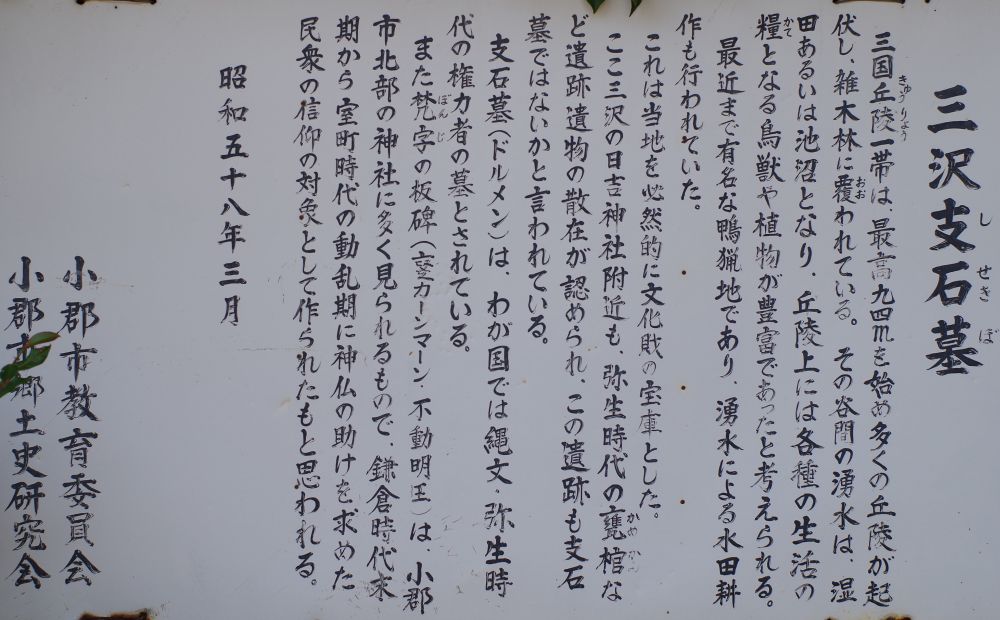 三沢支石墓
三国丘陵一帯は、最高九四mを始め多くの丘陵が起
伏し、雑木林に覆われている。その谷間の湧水は、湿
田あるいは池沼となり、丘陵上には各種の生活の
糧となる鳥獣や植物が豊富であったと考えられる。
最近まで有名な鴨猟地であり、湧水による水田耕
作も行われていた。
これは当地を必然的に文化財の宝庫とした。
ここ三沢の日吉神社附近も、弥生時代の甕棺な
ど遺跡遺物の散在が認められ、この遺跡も支石
墓ではないかと言われている。
支石墓(ドルメン)は わが国では縄文・弥生時
代の権力者の墓とされている。
また梵字の板碑(カーンマーン・不動明王)は、小郡
市北部の神社に多く見られるもので、鎌倉時代末
期から室町時代の動乱期に神仏の助けを求めた
民衆の信仰の対象として作られたもと思われる。
昭和五十八年三月
小郡市教育委員会
小郡市郷土史研究会